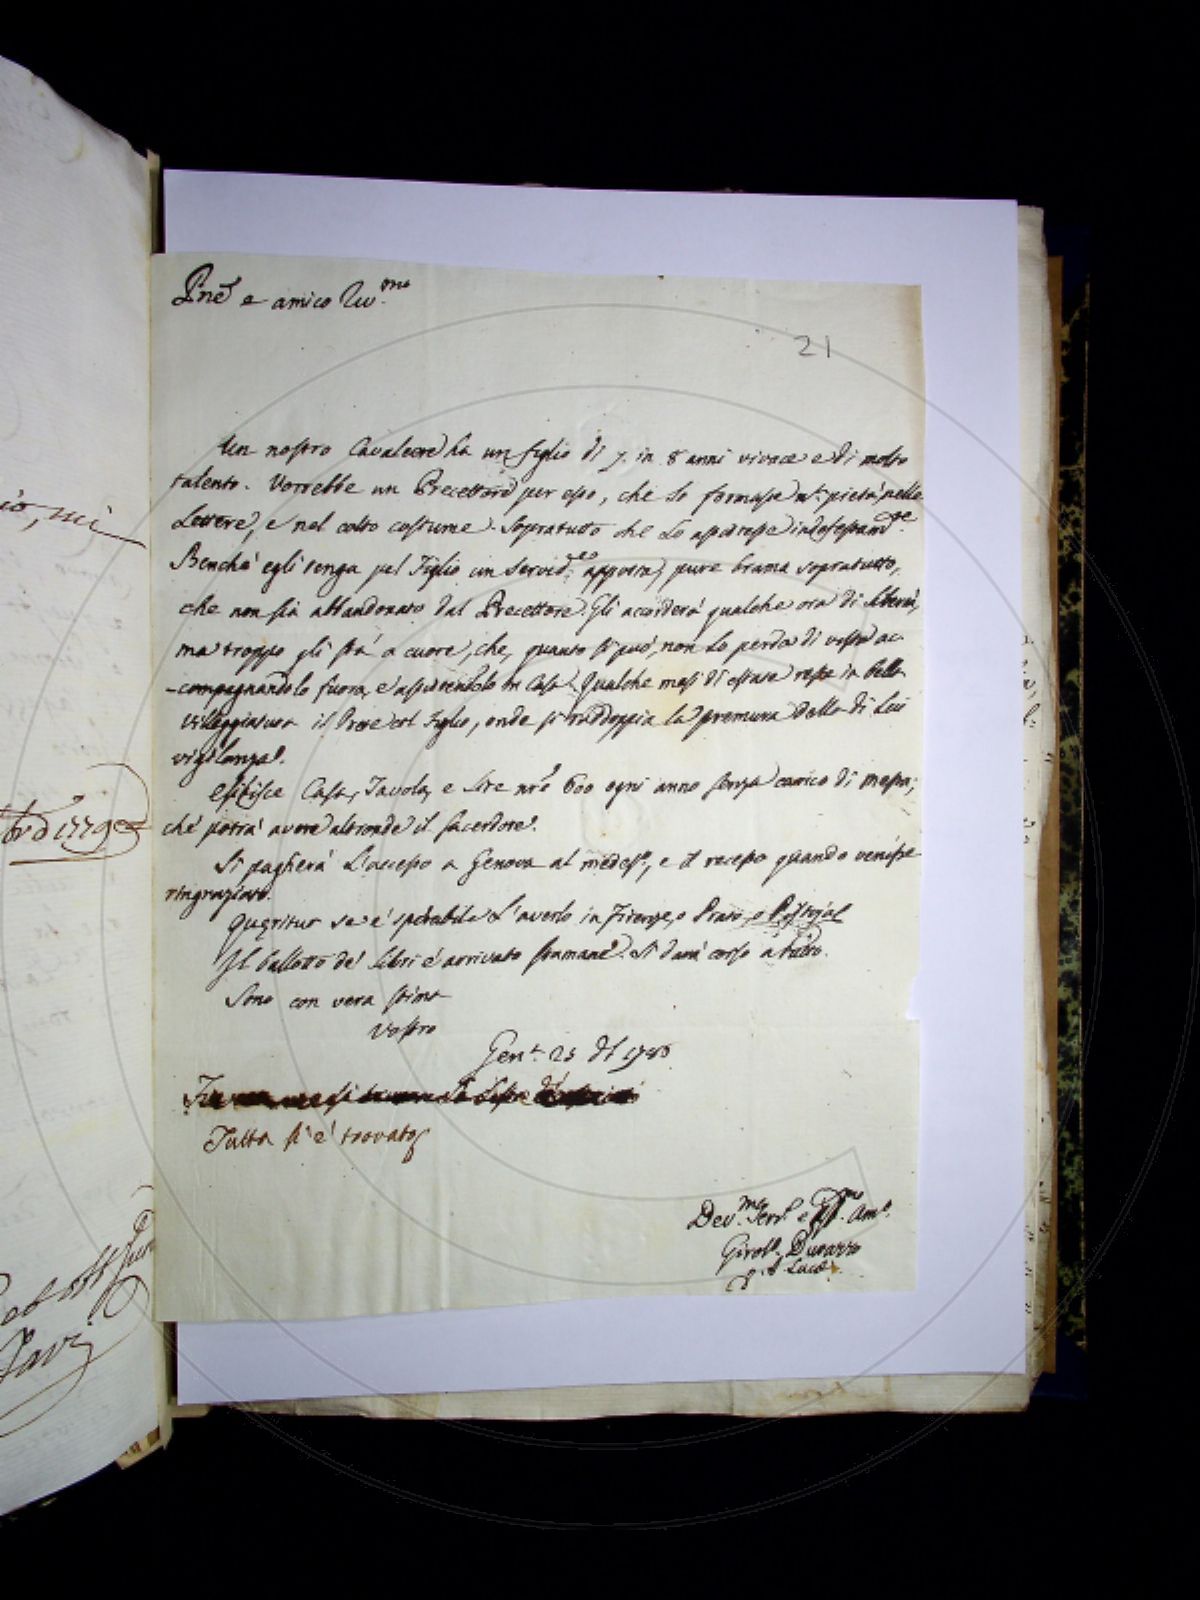 Pne e amico Riv.mo
21
Un nostro Cavaliere ha un figlio di 7. in 8 anni vivace e di molto
talento. Vorrebbe un Precettore per esso, che lo formasse n. pietà, nelle
Lettere, e nel colto costume. Sopratutto che lo assistesse indefessam.te
Benchè egli tenga pel Figlio un Servid.re apposta, pure brama sopratutto,
che non sia abbandonato dal Precettore. Gli accorderà qualche ora di libertà,
ma troppo gli stà a cuore, che, quanto si può, non lo perda di vista ac-
-compagnandolo fuora, e assistendolo in Casa. Qualche mesi di estate resta in bella
villeggiatura il Pre col Figlio, onde si raddoppia la premura della di Lui
vigilanza.
Esibisce Casa, Tavola, e lire nre 600 ogni anno senza carico di messa,
chè potrà avere altronde il sacerdote.
Si pagherà l'accesso a Genova al medes.o, e il recesso quando venisse
ringraziato.
Quęritur se è sperabile l'averlo in Firenze, o Prato, o Pistoja
Il ballotto de' libri è arrivato stamane. Si darà corso a tutto.
Sono con vera stima
Vostro
Gen. 25 del 1786
Tutto si è trovato
Dev.mo Serv.e e Am.o
Girol.o Durazzo